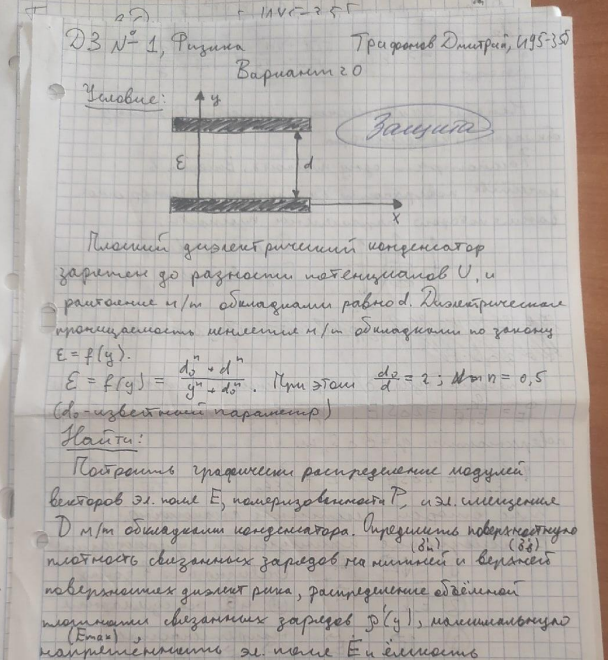 ДЗ №1, Физика Трифонов Дмитрий, ИУ5-35Б
Вариант 20
Условие:
y
Защита
ε
d
x
Плоский диэлектрический конденсатор
заряжен до разности потенциалов U, и
расстояние м/т обкладками равно d. Диэлектрическая
проницаемость меняется м/т обкладками по закону
ε = f(y).
ε = f(y) = (d₀ⁿ + dⁿ)/(yⁿ + d₀ⁿ). При этом d₀/d = 2; n = 0,5
(d₀-известный параметр)
Найти:
Построить графически распределение модулей
векторов эл. поле E, поляризованности P, и эл. смещения
D м/т обкладками конденсатора. Определить поверхностную
плотность связанных зарядов на нижней (σ'н) и верхней (σ'в)
поверхностях диэлектрика, распределение объёмной
плотности связанных зарядов ρ'(y), максимальную
(Emax)
напряжённость эл. поле E и ёмкость